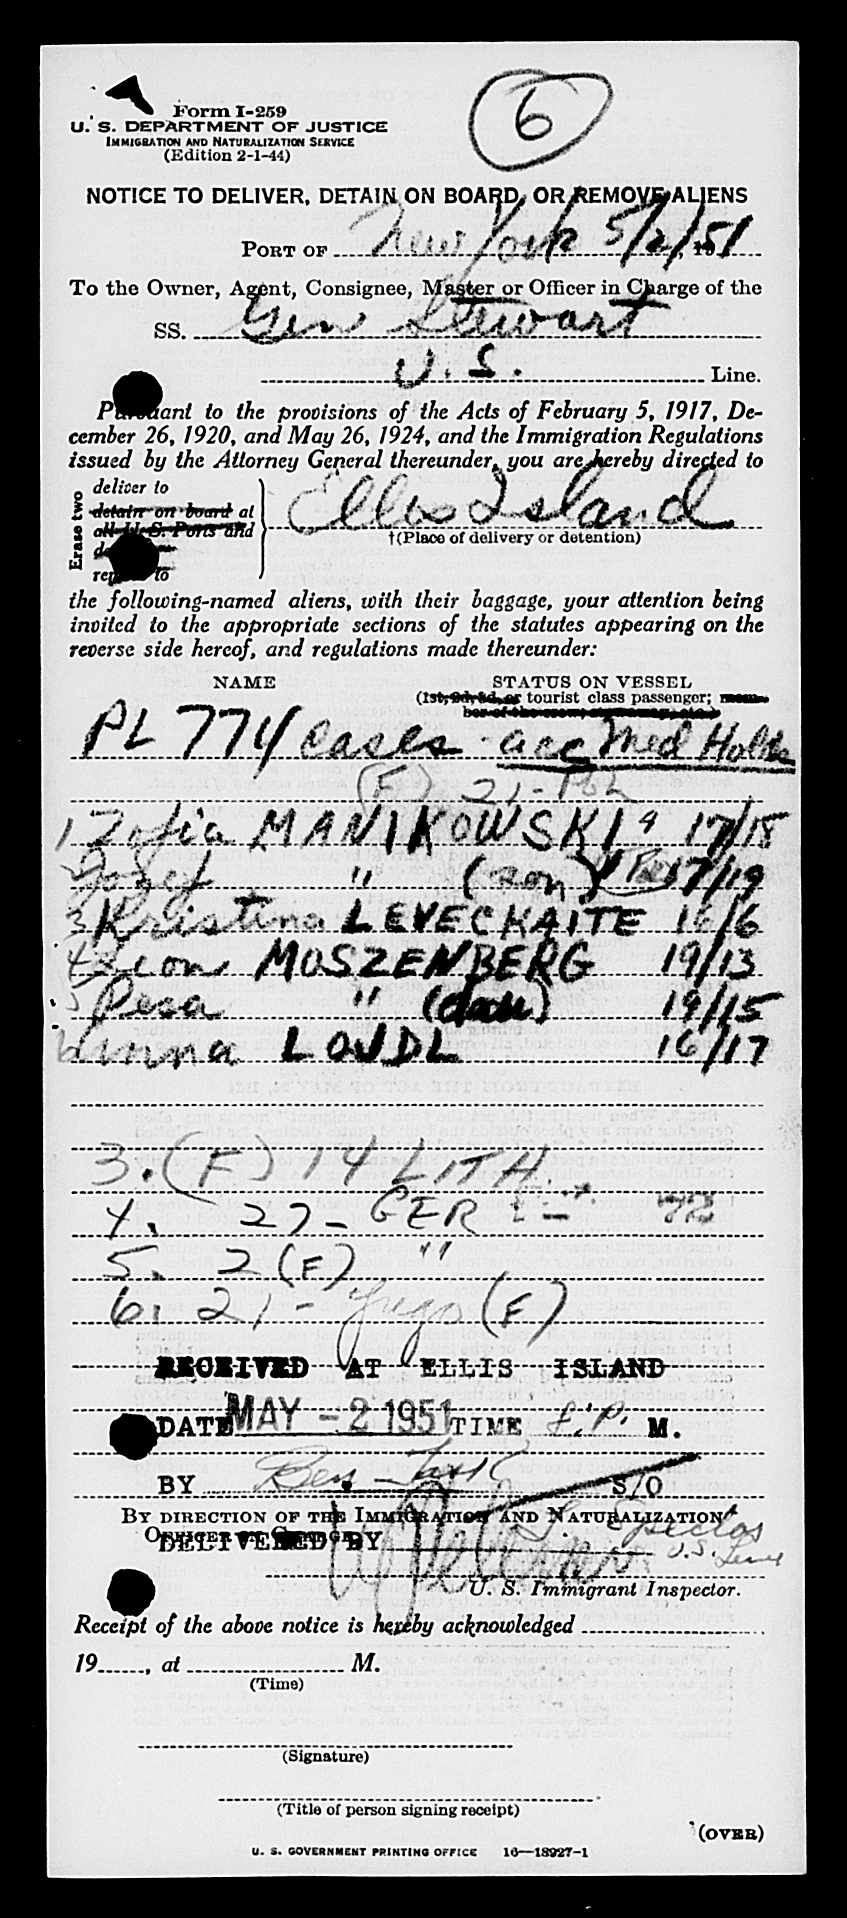 6
Form I-259
U. S. DEPARTMENT OF JUSTICE
IMMIGRATION AND NATURALIZATION SERVICE
(Edition 2-1-44)
NOTICE TO DELIVER, DETAIN ON BOARD, OR REMOVE ALIENS
PORT OF New York 5/2/51, 19
To the Owner, Agent, Consignee, Master or Officer in Charge of the
SS. Gen Stewart
U. S. Line.
Pursuant to the provisions of the Acts of February 5, 1917, De-
cember 26, 1920, and May 26, 1924, and the Immigration Regulations
issued by the Attorney General thereunder, you are hereby directed to
Erase two
deliver to
detain on board at
all U. S. Ports and
remove to
Ellis Island
†(Place of delivery or detention)
the following-named aliens, with their baggage, your attention being
invited to the appropriate sections of the statutes appearing on the
reverse side hereof, and regulations made thereunder:
NAME STATUS ON VESSEL
(1st, 2d, 3d, or tourist class passenger; mem-
ber of the crew;
PL 774 cases - acc Med Holds
(F) 21 - Pol
1 Zofia MANIKOWSKI 4 17/18
Jozef " (son) 17/19
3 Kristina LEVECKAITE 16/6
4 Leon MOSZENBERG 19/13
5 Pesa " (dau) 19/15
6 Anna LOUDL 16/17
3. (F) 14 LITH.
4. 27 - GER 72
5. 2 (F) "
6. 21 - Yugo (F)
RECEIVED AT ELLIS ISLAND
DATE MAY - 2 1951 TIME P. M.
BY Ben S/O
BY DIRECTION OF THE IMMIGRATION AND NATURALIZATION
OFFICER IN CHARGE
DELIVERED BY
U.S. Lines
U. S. Immigrant Inspector.
Receipt of the above notice is hereby acknowledged
19......, at M.
(Time)
(Signature)
(Title of person signing receipt)
(OVER)
U. S. GOVERNMENT PRINTING OFFICE 16—18927-1